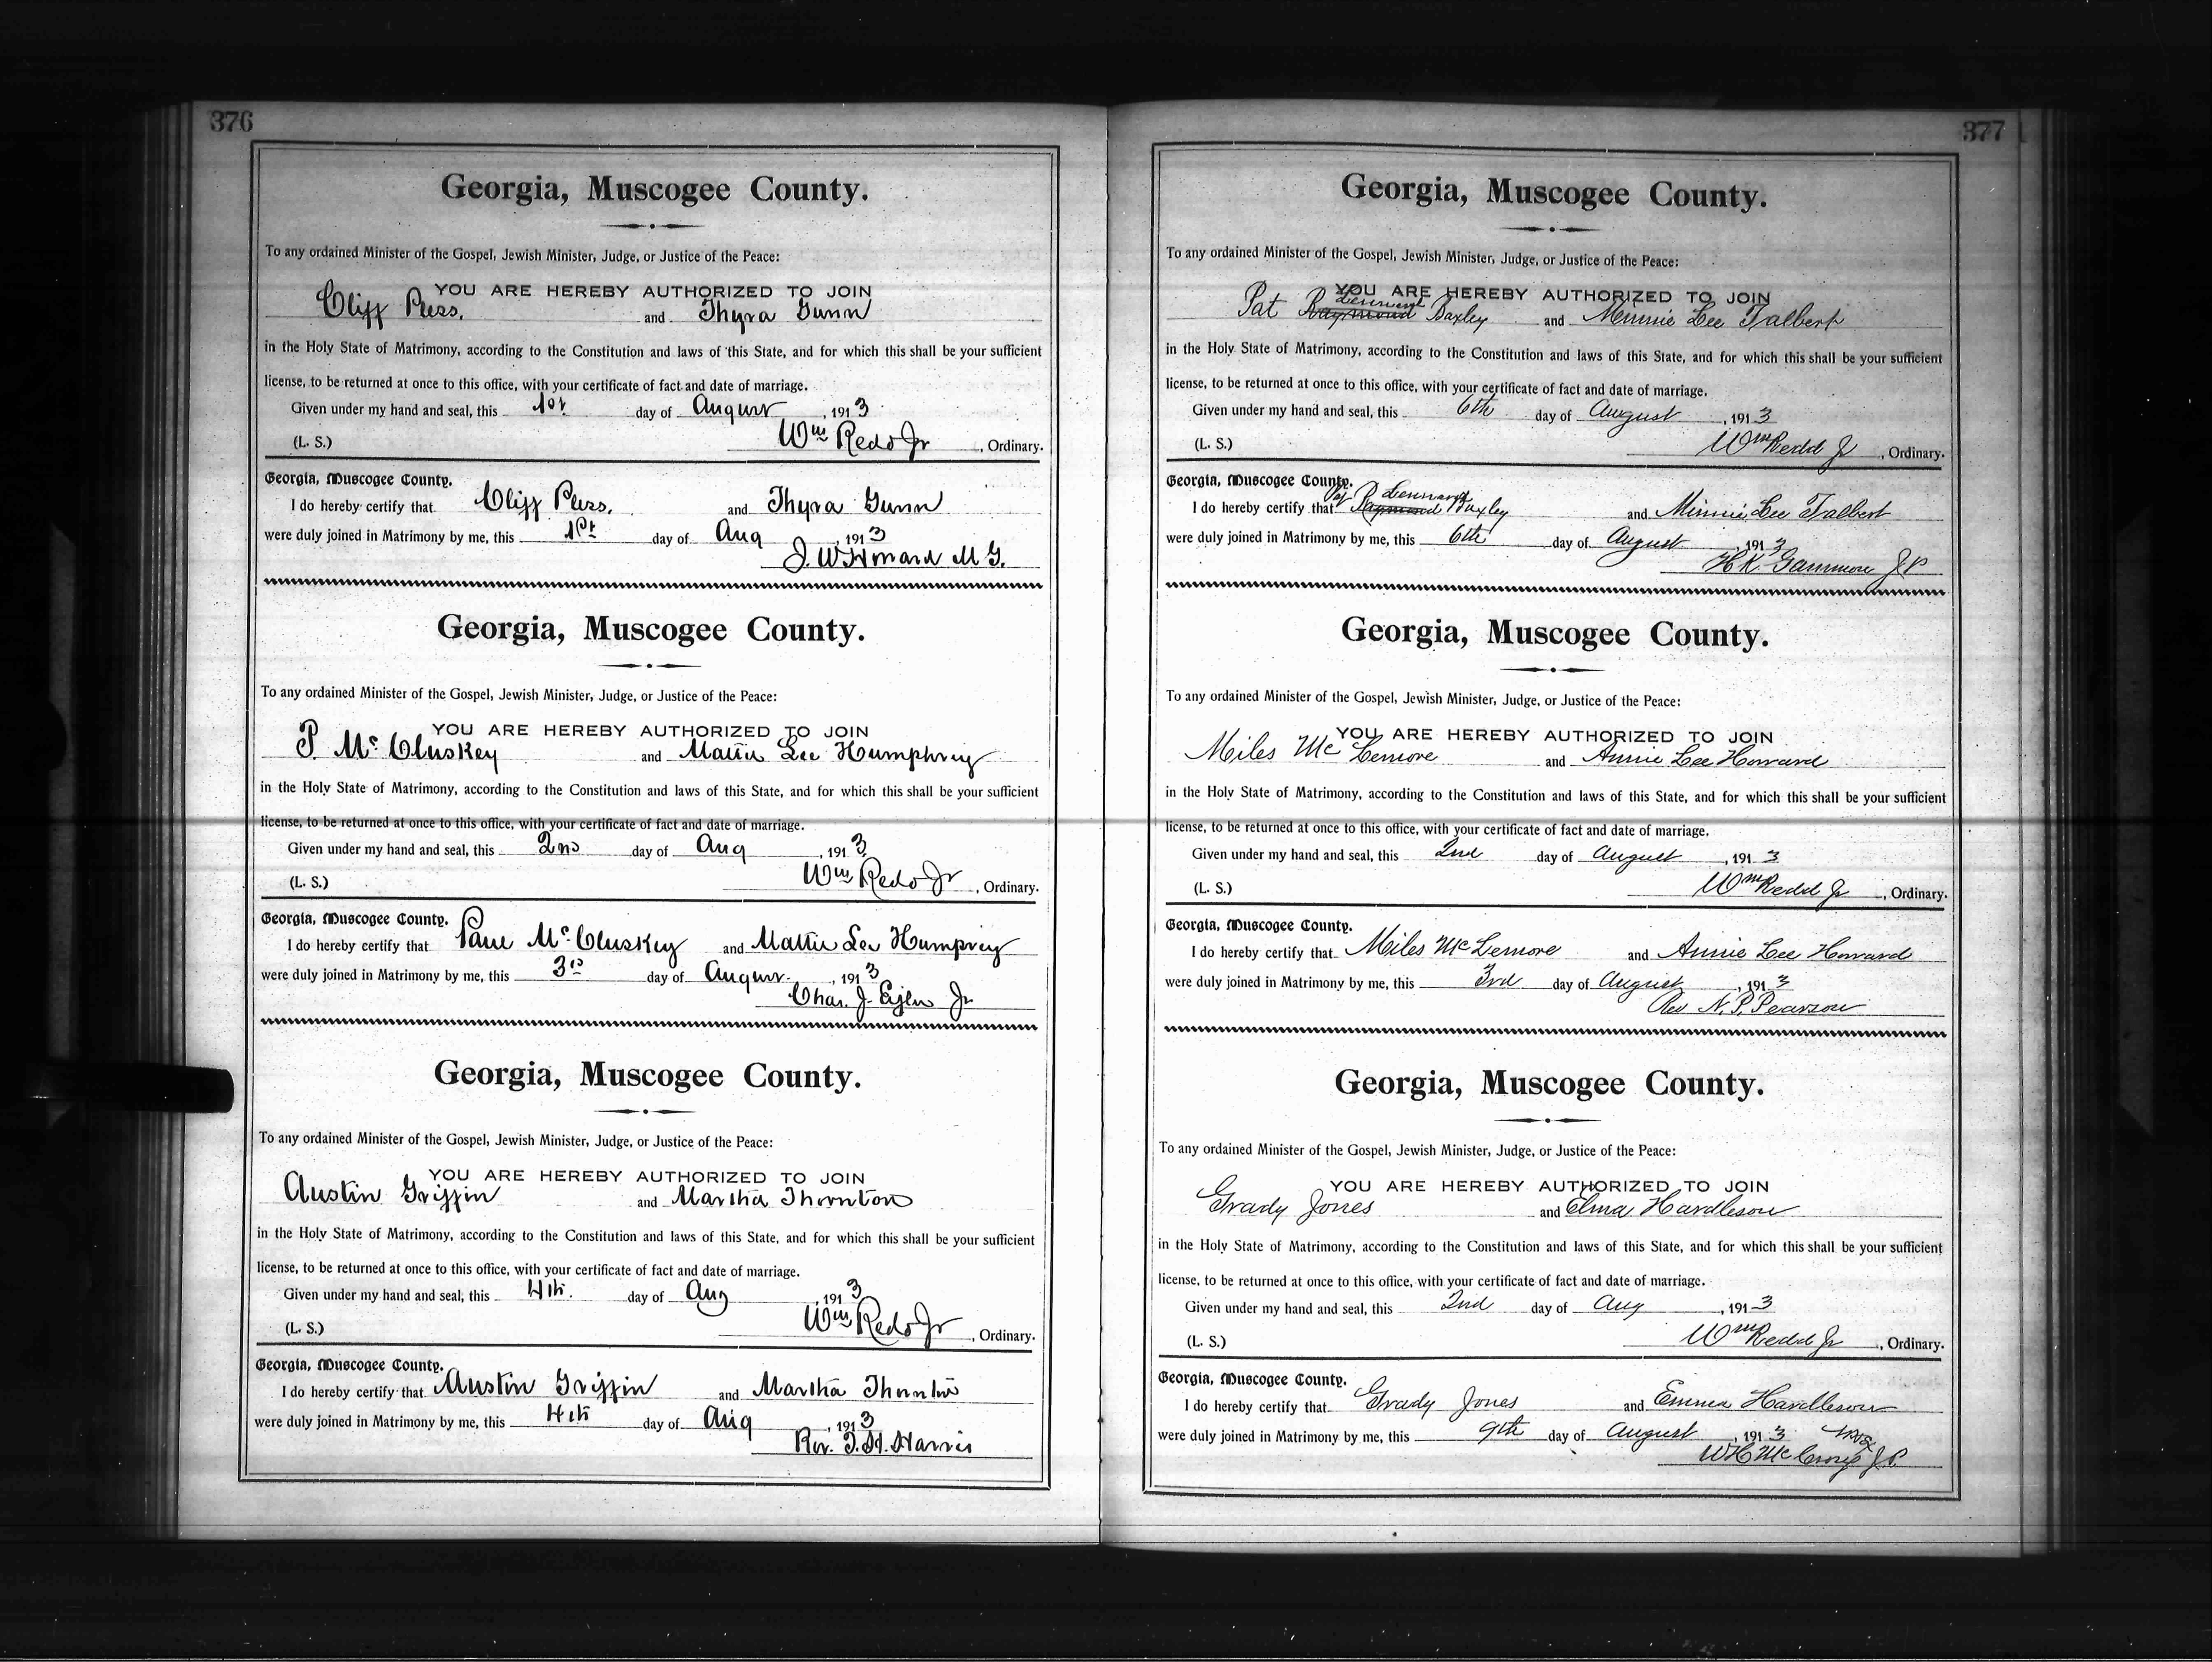 376
Georgia, Muscogee County.
To any ordained Minister of the Gospel, Jewish Minister, Judge, or Justice of the Peace:
YOU ARE HEREBY AUTHORIZED TO JOIN
Cliff Pless. and Thyra Gunn
in the Holy State of Matrimony, according to the Constitution and laws of this State, and for which this shall be your sufficient
license, to be returned at once to this office, with your certificate of fact and date of marriage.
Given under my hand and seal, this 1st day of August, 1913
(L. S.) Wm Redd Jr, Ordinary.
Georgia, Muscogee County.
I do hereby certify that Cliff Pless. and Thyra Gunn
were duly joined in Matrimony by me, this 1st day of Aug, 1913
J. W. Howard M. G.
Georgia, Muscogee County.
To any ordained Minister of the Gospel, Jewish Minister, Judge, or Justice of the Peace:
YOU ARE HEREBY AUTHORIZED TO JOIN
P. McCluskey and Mattie Lee Humphrey
in the Holy State of Matrimony, according to the Constitution and laws of this State, and for which this shall be your sufficient
license, to be returned at once to this office, with your certificate of fact and date of marriage.
Given under my hand and seal, this 2nd day of Aug, 1913
(L. S.) Wm Redd Jr, Ordinary.
Georgia, Muscogee County.
I do hereby certify that Paul McCluskey and Mattie Lee Humprey
were duly joined in Matrimony by me, this 3rd day of August, 1913
Chas. J. Jr
Georgia, Muscogee County.
To any ordained Minister of the Gospel, Jewish Minister, Judge, or Justice of the Peace:
YOU ARE HEREBY AUTHORIZED TO JOIN
Austin Griffin and Martha Thornton
in the Holy State of Matrimony, according to the Constitution and laws of this State, and for which this shall be your sufficient
license, to be returned at once to this office, with your certificate of fact and date of marriage.
Given under my hand and seal, this 4th. day of Aug, 1913
(L. S.) Wm Redd Jr, Ordinary.
Georgia, Muscogee County.
I do hereby certify that Austin Griffin and Martha Thornton
were duly joined in Matrimony by me, this 4th day of Aug, 1913
Rev. T. H. Harris
377
Georgia, Muscogee County.
To any ordained Minister of the Gospel, Jewish Minister, Judge, or Justice of the Peace:
YOU ARE HEREBY AUTHORIZED TO JOIN
Lennard
Pat Raymond Baxley and Minnie Lee Talbert
in the Holy State of Matrimony, according to the Constitution and laws of this State, and for which this shall be your sufficient
license, to be returned at once to this office, with your certificate of fact and date of marriage.
Given under my hand and seal, this 6th day of August, 1913
(L. S.) Wm Redd Jr, Ordinary.
Georgia, Muscogee County.
Pat Lennard
I do hereby certify that Raymond Baxley and Minnie Lee Talbert
were duly joined in Matrimony by me, this 6th day of August, 1913
H. K. Gammon J P
Georgia, Muscogee County.
To any ordained Minister of the Gospel, Jewish Minister, Judge, or Justice of the Peace:
YOU ARE HEREBY AUTHORIZED TO JOIN
Miles McLemore and Annie Lee Howard
in the Holy State of Matrimony, according to the Constitution and laws of this State, and for which this shall be your sufficient
license, to be returned at once to this office, with your certificate of fact and date of marriage.
Given under my hand and seal, this 2nd day of August, 1913
(L. S.) Wm Redd Jr, Ordinary.
Georgia, Muscogee County.
I do hereby certify that Miles McLemore and Annie Lee Howard
were duly joined in Matrimony by me, this 3rd day of August, 1913
Rev N. P. Pearson
Georgia, Muscogee County.
To any ordained Minister of the Gospel, Jewish Minister, Judge, or Justice of the Peace:
YOU ARE HEREBY AUTHORIZED TO JOIN
Grady Jones and Elma Hardleson
in the Holy State of Matrimony, according to the Constitution and laws of this State, and for which this shall be your sufficient
license, to be returned at once to this office, with your certificate of fact and date of marriage.
Given under my hand and seal, this 2nd day of Aug, 1913
(L. S.) Wm Redd Jr, Ordinary.
Georgia, Muscogee County.
I do hereby certify that Grady Jones and Emma Hardleson
were duly joined in Matrimony by me, this 9th day of August, 1913
W H McCrory J P.